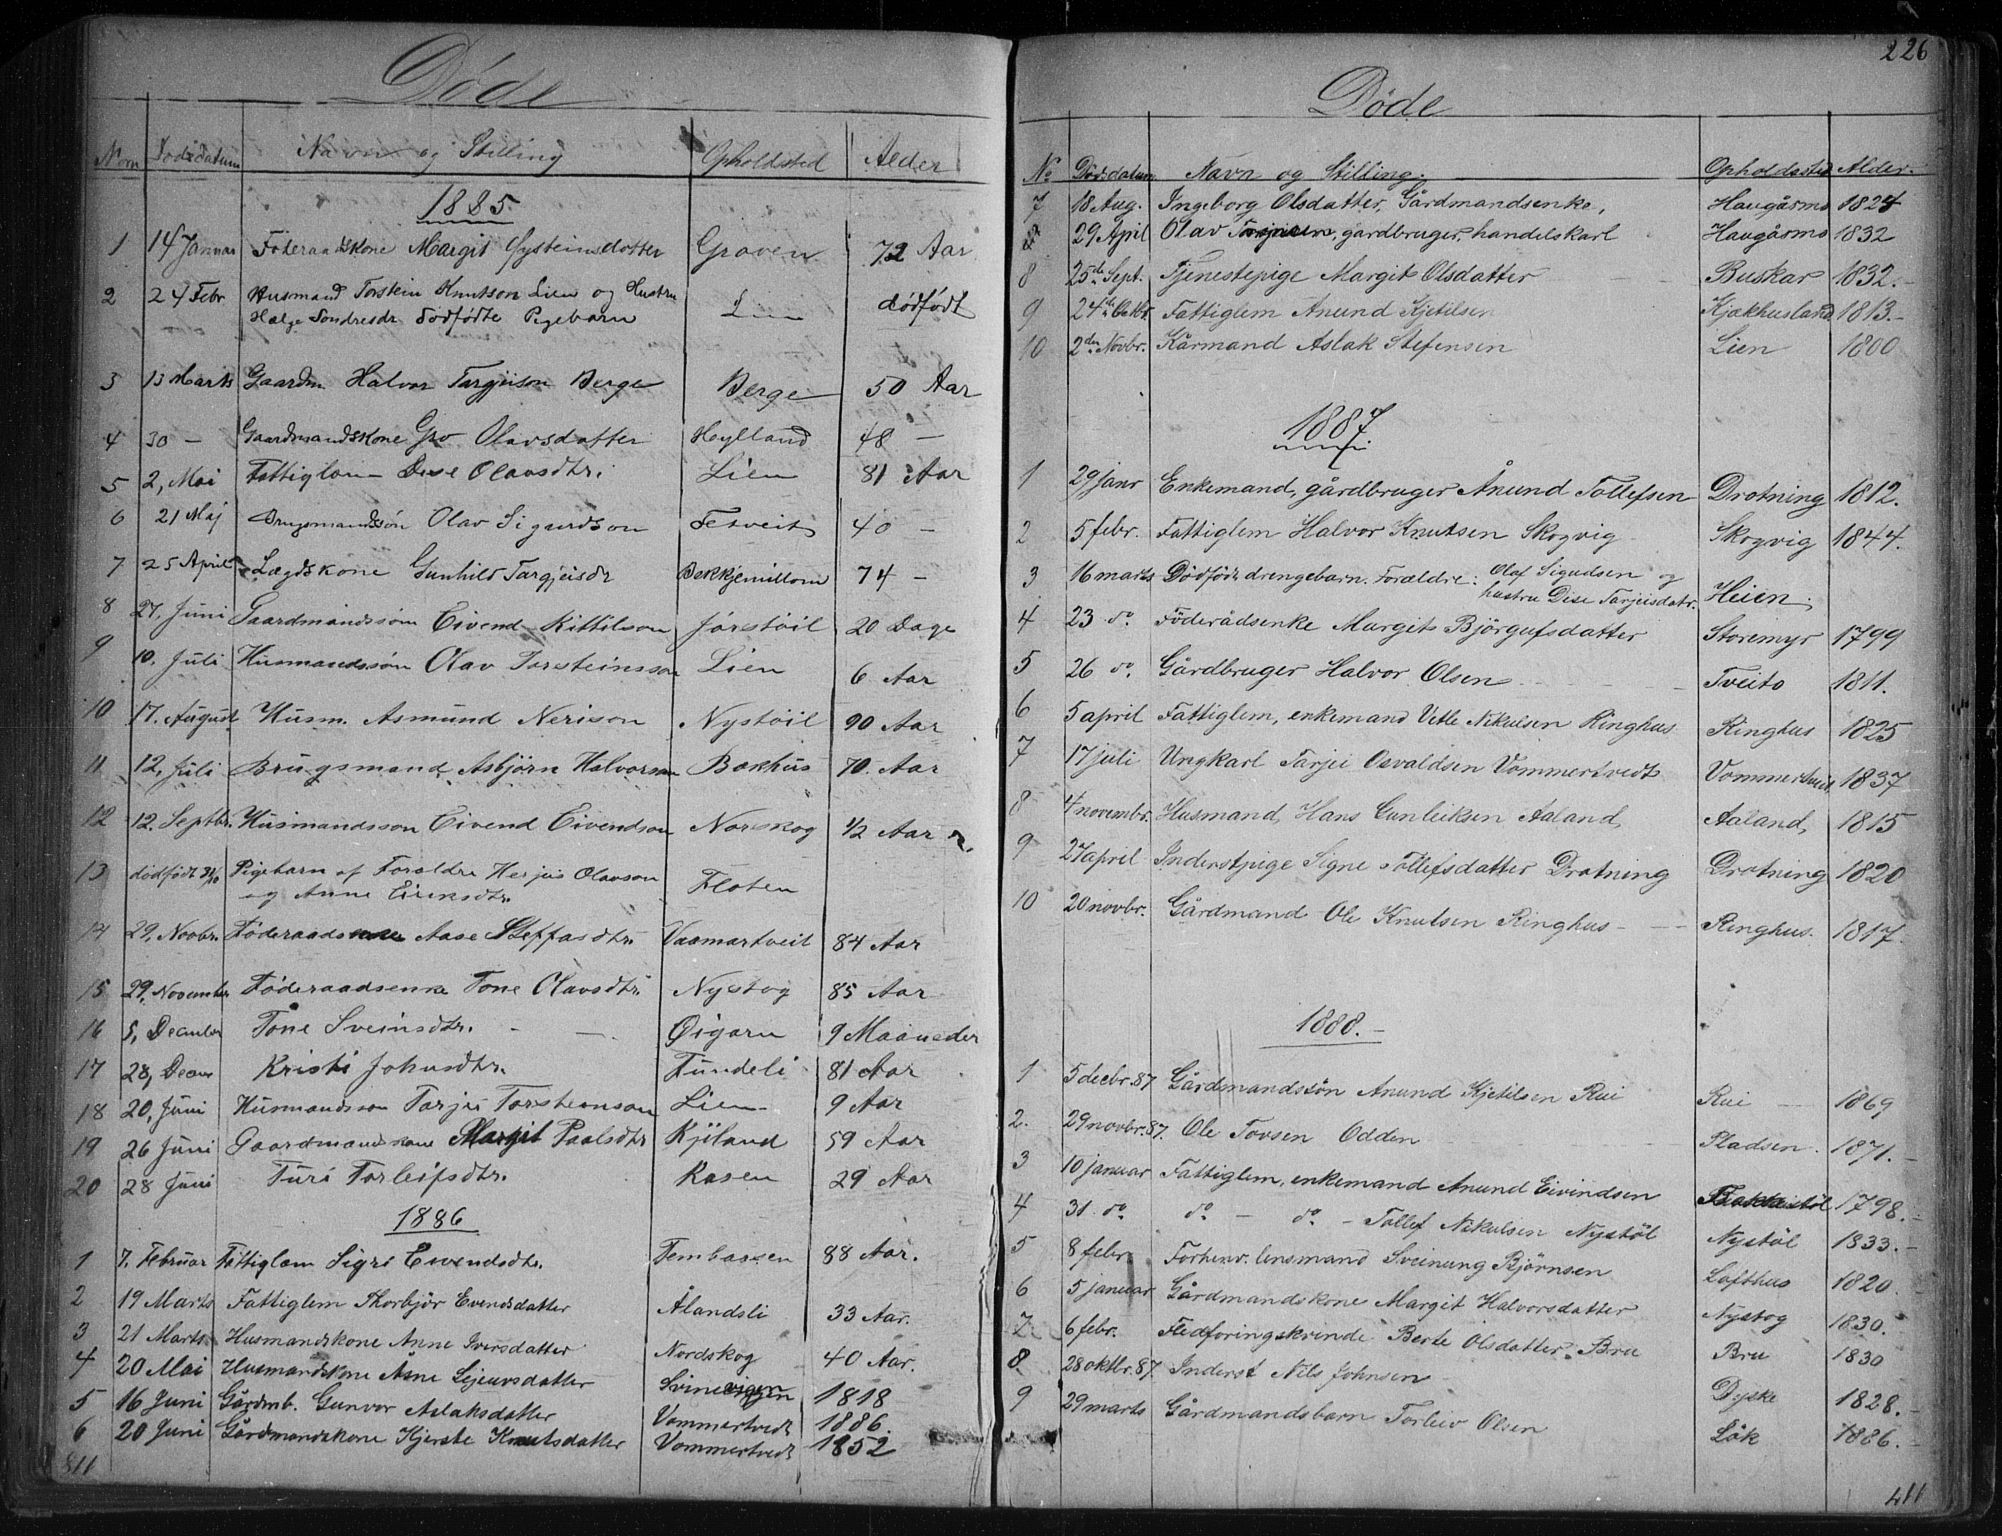 Döde
Nom Dödsdatum Navn og Stilling Opholdsted Alder
1885
1 14 Januar Föderaadskone Margit Øysteinsdotter Groven 72 Aar
2 24 Febr Husmand Torstein Knutson Lien og Hustru
Hælge Tondresdr dödfödte Pigebarn Lien dödfödt
3 13 Marts Gaardm Halvor Targjeison Berge Berge 50 Aar
4 30 – Gaardmandskone Gro Olavsdatter Heylland 48 –
5 2, Mai Fattiglem – Dise Olavsdtr. Lien 81 Aar
6 21 Maj Brugsmandssön Olav Sigurdson Tetveit 40 –
7 25 April Lægdskone Gunhild Targjeisdr Bekkjemillom 74 –
8 27, Juni Gaardmandssön Eivend Kittilson Jørstöil 20 Dage
9 10. Juli Husmandssön Olav Torsteinsson Lien 6 Aar
10 17. August Husm. Asmund Nerison Nystöil 90 Aar
11 12, Juli Brugsmand Asbjörn Halvorson Bakhus 70. Aar
12 12. Septbr. Husmandsson Eivend Eivendson Norskog 1/2 Aar
13 dödfödt 31/10 Pigebarn af Foreldre Herjus Olavson
og Anne Eiriksdtr. Floten
14 29, Novbr. Föderaads Aase Steffasdtr. Vaamartveit 84 Aar
15 29, November Föderaadsenke Tone Olavsdtr. Nystog 85 Aar
16 5, December Tone Sveinsdtr. – – Øigarn 9 Maaneder
17 28, Decem Kristi Johnsdtr. Tundeli 81 Aar
18 20, Juni Husmandsson Tarjei Torsteinson Lien 9 Aar
19 26 Juni Gaardmandskone Margit Paalsdtr Kjiland 59 Aar
20 28 Juni Turi Torleifsdtr. Rasen 29 Aar
1886
1 7. Februar Fattiglem Sigri Eivendsdtr. Tembassen 88 Aar.
2 19 Marts Fattiglem Thorbjör Evendsdatter Ålandsli 33 Aar.
3 21 Marts. Husmandskone Anne Iversdatter Nordskog 40 Aar.
4 20 Mai Husmandskone Åsne Sjeursdatter 1818
5 16 Juni Gårdmb. Gunvor Aslaksdatter Vommertvedt 1886
6 20 Juni Gårdmandskone Kjerste Knutsdatter Vommertvedt 1852
811
226
Döde
No Dödsdatum Navn og Stilling. Opholdssted Alder.
7 18 Aug. Ingeborg Olsdatter, Gårdmandsenke, Haugåsmo 1824
29 April Olav gardbruger, handelskarl Haugåsmo 1832
8 25de Sept. Tjenestepige Margit Olsdatter – Buskar 1832. –
9 24de Oktbr. Fattiglem Anund Kjetilsen Kjækhusland 1813. –
10 2den Novbr. Kårmand Aslak Stefensen Lien 1800
1887.
1 29 janr Enkemand, gårdbruger Ånund Tollefsen Drotning 1812.
2 5 febr. Fattiglem Halvor Knutsen Skogvig Skogvig 1844.
3 16 marts Dödfödt drengebarn. Forældre: Olaf Sigudsen og
hustru Dise Tarjeisdatr. Heien.
4 23 do. Föderådsenke Margit Björgufsdatter Storemyr 1799
5 26 do. Gårdbruger Halvor Olsen Tveito 1811.
6 5 april Fattiglem, enkemand Vetle Nikulsen Ringhus Ringhus 1825
7 17 juli Ungkarl Tarjei Osvaldsen Vommertvedt Vommertveit 1837
8 4 novembr. Husmand, Hans Gunleiksen Aaland, Aaland, 1815
9 27 april Inderstpige Signe Tollefsdatter Drotning Drotning 1820
10 20 novbr. Gårdmand Ole Knutsen Ringhus – – Ringhus. 1817.
1888. –
1 5 decbr. 87 Gårdmandssön Anund Kjetilsen Rui Rui – 1869
2. 29 novbr. 87. Ole Tovsen Odden Pladsen. 1871. –
3 10 januar Fattiglem, enkemand Anund Eivindsen 1798. –
4 31. do. do. – do. – Tollef Nikulsen Nystöl Nystöl 1833. –
5 8 febr Forhenv. lensmand Sveinung Björnsen Lofthus 1820.
6 5 januar Gårdmandskone Margit Halvorsdatter Nystog 1830. –
7 6 febr. Fledforingskvinde Berte Olsdatter Bru Bru 1830
8 28 oktbr. 87. Inderst Nils Johnsen Dyske 1828. –
9 29 marts Gårdmandsbarn Torleiv Olsen Låk 1886. –
411